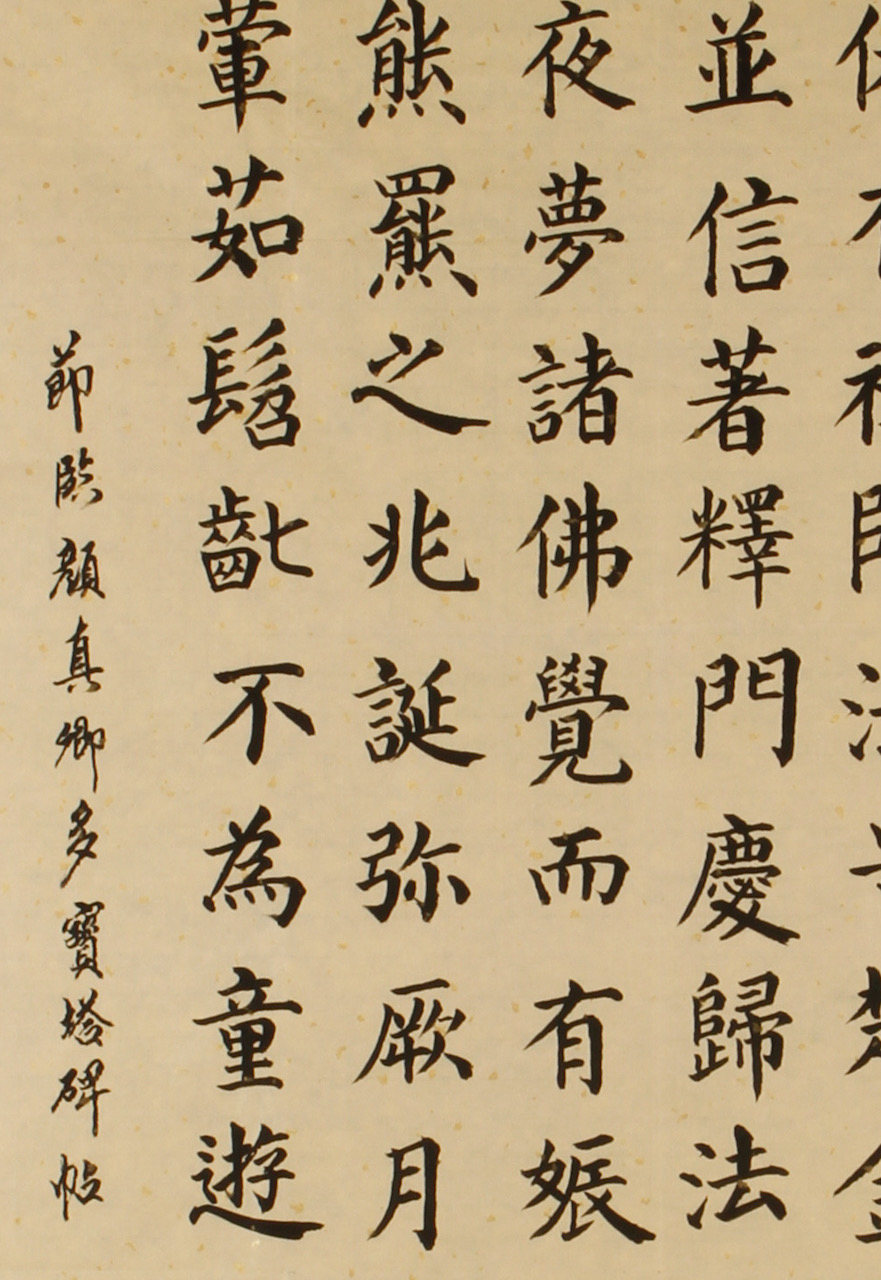 並信著釋門慶歸法
夜夢諸佛覺而有娠
熊羆之兆誕弥厥月
葷茹髫齔不為童遊
節臨顔真卿多寶塔碑帖